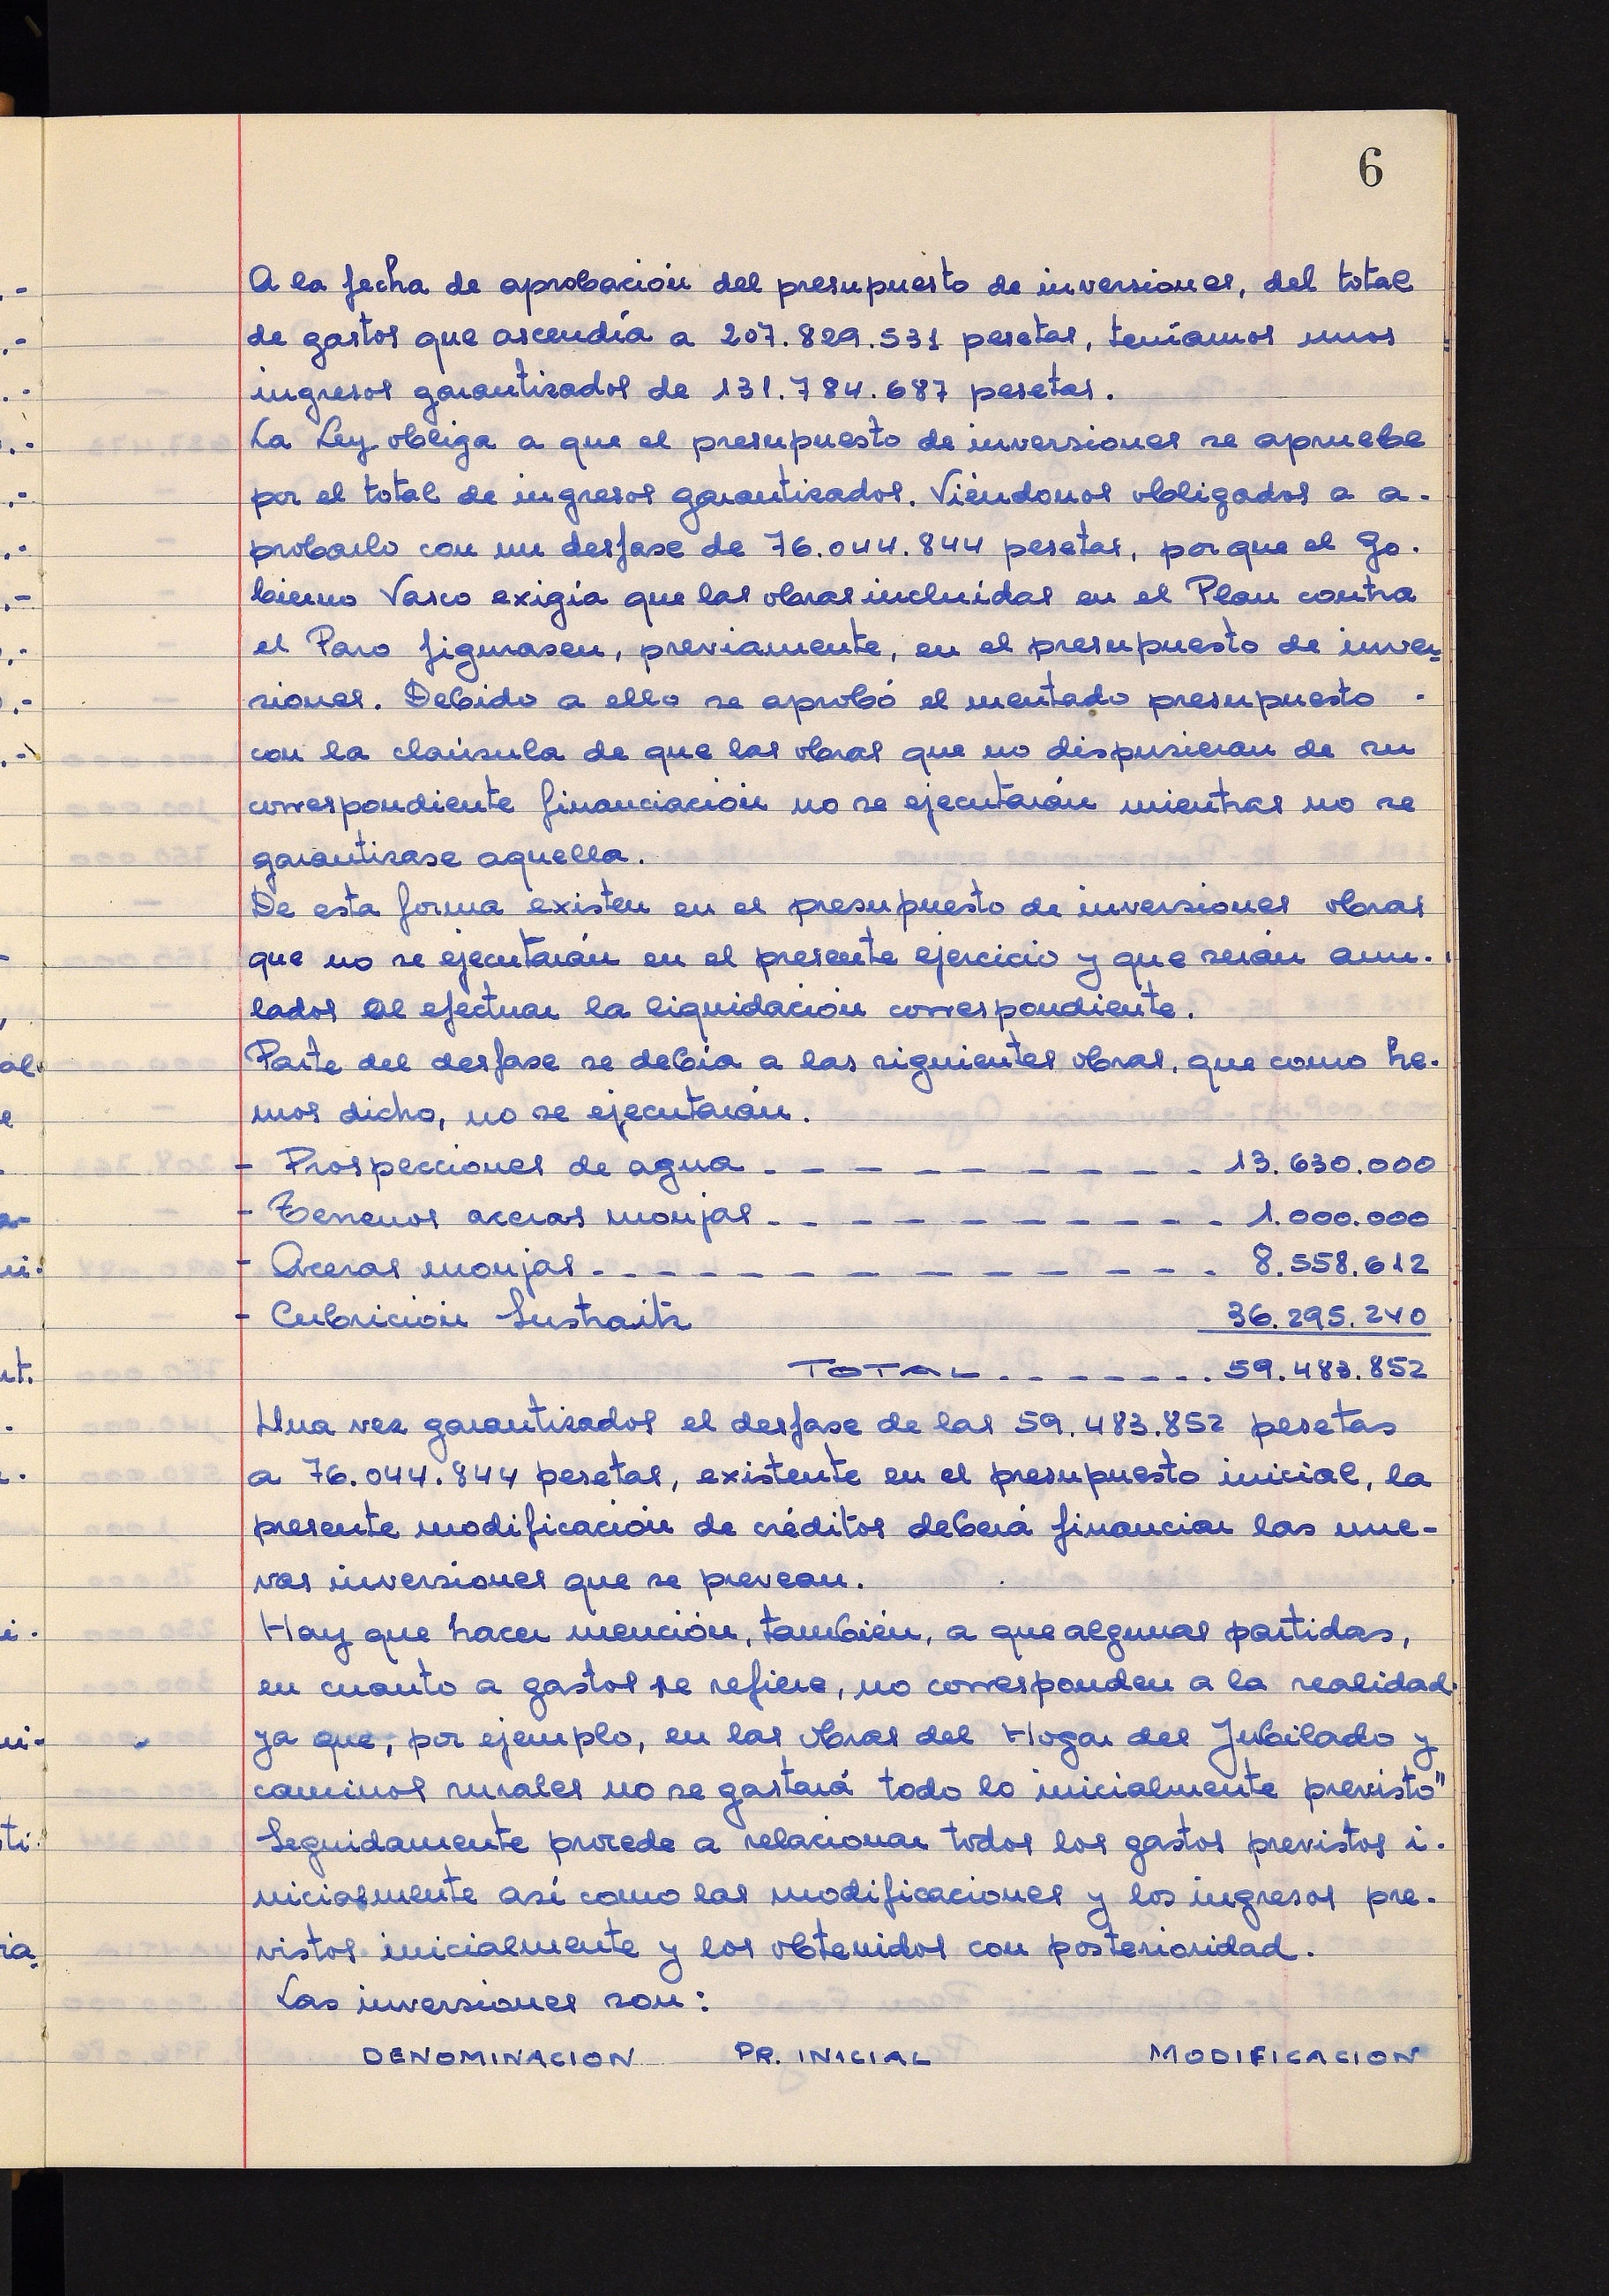 6
A la fecha de aprobación del presupuesto de inversiones, del total
de gastos que ascendía a 207.829.531 pesetas, teníamos unos
ingresos garantizados de 131.784.687 pesetas.
La Ley obliga a que el presupuesto de inversiones se apruebe
por el total de ingresos garantizados. Viéndonos obligados a a-
probarlo con un desfase de 76.044.844 pesetas, porque el Go-
bierno Vasco exigía que las obras incluídas en el Plan contra
el Paro figurasen, previamente, en el presupuesto de inver-
siones. Debido a ello se aprobó el mentado presupuesto -
con la claúsula de que las obras que no dispusieran de su
correspondiente financiación no se ejecutarán mientras no se
garantizase aquella.
De esta forma existen en el presupuesto de inversiones obras
que no se ejecutarán en el presente ejercicio y que serán anu-
lados al efectuar la liquidación correspondiente.
Parte del desfase se debía a las siguientes obras, que como he-
mos dicho, no se ejecutarán.
- Prospecciones de agua - - - - - - - - - - 13.630.000
- Terrenos aceras monjas - - - - - - - - - - 1.000.000
- Aceras monjas - - - - - - - - - - - - - 8.558.612
- Cubrición Sustraitz 36.295.240
TOTAL - - - - - - - 59.483.852
Una vez garantizados el desfase de las 59.483.852 pesetas
a 76.044.844 pesetas, existente en el presupuesto inicial, la
presente modificación de créditos deberá financiar las nue-
vas inversiones que se prevean.
Hay que hacer mención, también, a que algunas partidas,
en cuanto a gastos se refiere, no corresponden a la realidad
ya que, por ejemplo, en las obras del Hogar del Jubilado y
caminos rurales no se gastará todo lo inicialmente previsto"
Seguidamente procede a relacionar todos los gastos previstos i-
nicialmente así como las modificaciones y los ingresos pre-
vistos inicialmente y los obtenidos con posterioridad.
Las inversiones son:
DENOMINACION PR. INICIAL MODIFICACION